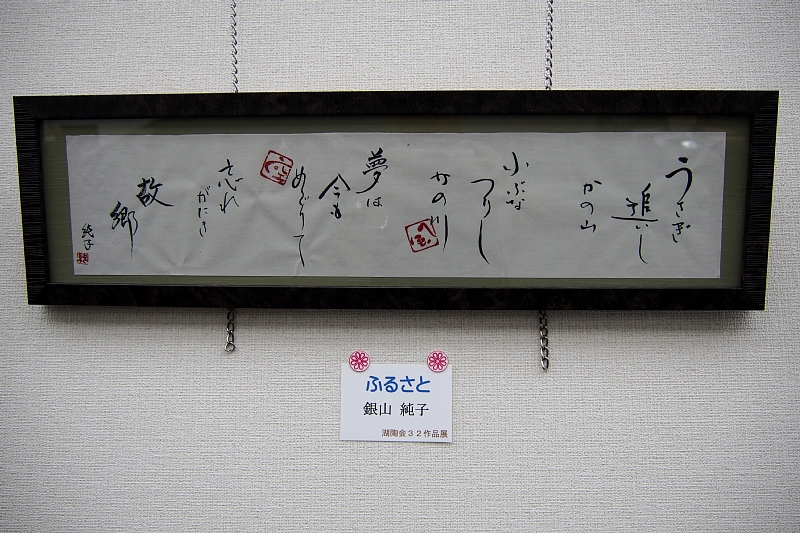 うさぎ
追いし
かの山
小ぶな
つりし
かの川
夢は
今も
めぐりて
忘れ
がたき
故郷
純子
ふるさと
銀山 純子
湖陶会32作品展